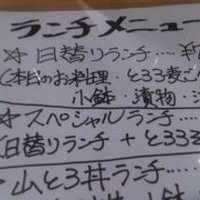 ランチメニュー
☆日替りランチ....
(本日のお料理・とろろ麦ご
小鉢・漬物・
☆スペシャルランチ....
日替りランチ + とろろ
☆山とろ丼ランチ....